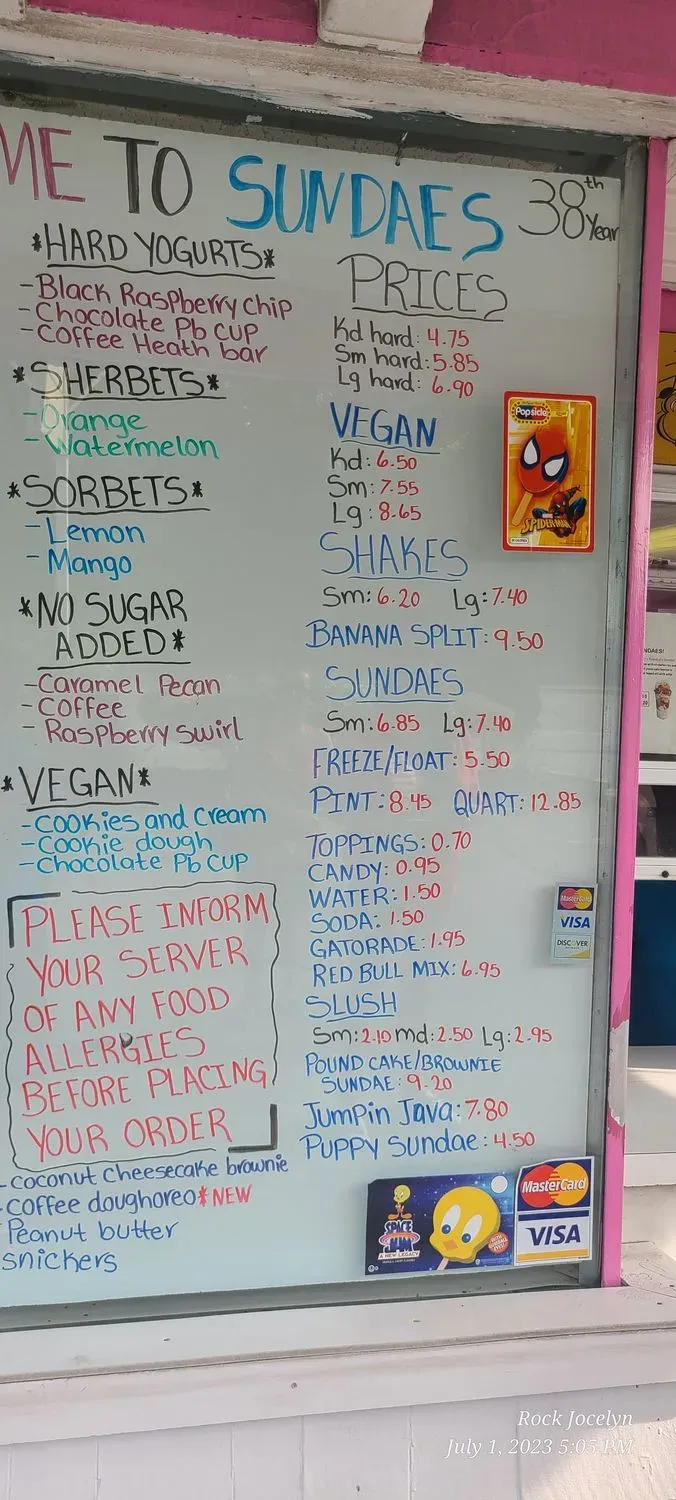 ME TO SUNDAES 38th Year
*HARD YOGURTS*
-Black Raspberry chip
-Chocolate Pb CUP
-Coffee Heath bar
*SHERBETS*
-Orange
-Watermelon
*SORBETS*
-Lemon
-Mango
*NO SUGAR
ADDED*
-Caramel Pecan
-Coffee
-Raspberry Swirl
*VEGAN*
-Cookies and Cream
-Cookie dough
-Chocolate Pb CUP
PLEASE INFORM
YOUR SERVER
OF ANY FOOD
ALLERGIES
BEFORE PLACING
YOUR ORDER
-coconut Cheesecake brownie
-coffee doughoreo* NEW
Peanut butter
snickers
PRICES
Kd hard: 4.75
Sm hard: 5.85
Lg hard: 6.90
VEGAN
Kd: 6.50
Sm: 7.55
Lg: 8.65
SHAKES
Sm: 6.20 Lg: 7.40
BANANA SPLIT: 9.50
SUNDAES
Sm: 6.85 Lg: 7.40
FREEZE/FLOAT: 5.50
PINT: 8.45 QUART: 12.85
TOPPINGS: 0.70
CANDY: 0.95
WATER: 1.50
SODA: 1.50
GATORADE: 1.95
RED BULL MIX: 6.95
SLUSH
Sm: 2.10 md: 2.50 Lg: 2.95
POUND CAKE/BROWNIE
SUNDAE: 9.20
Jumpin Java: 7.80
PUPPY Sundae: 4.50
Popsicle
SPIDER-MAN
MasterCard
VISA
DISCOVER
SPACE
JAM
A NEW LEGACY
MasterCard
VISA
NDAES!
Rock Jocelyn
July 1, 2023 5:05 PM